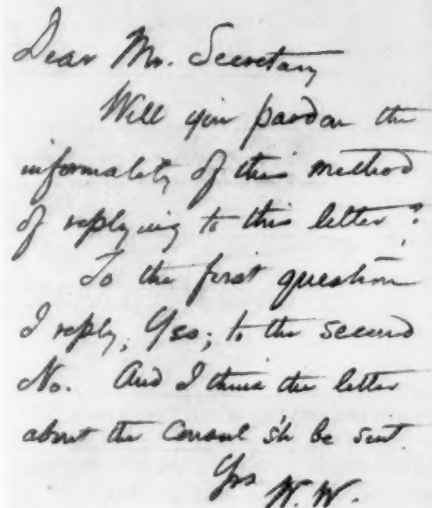 Dear Mr. Secretary
Will you pardon the
informality of this method
of replying to this letter?
To the first question
I reply, Yes; to the second
No. And I think the letter
about the Consul sh be sent.
Yrs W.W.